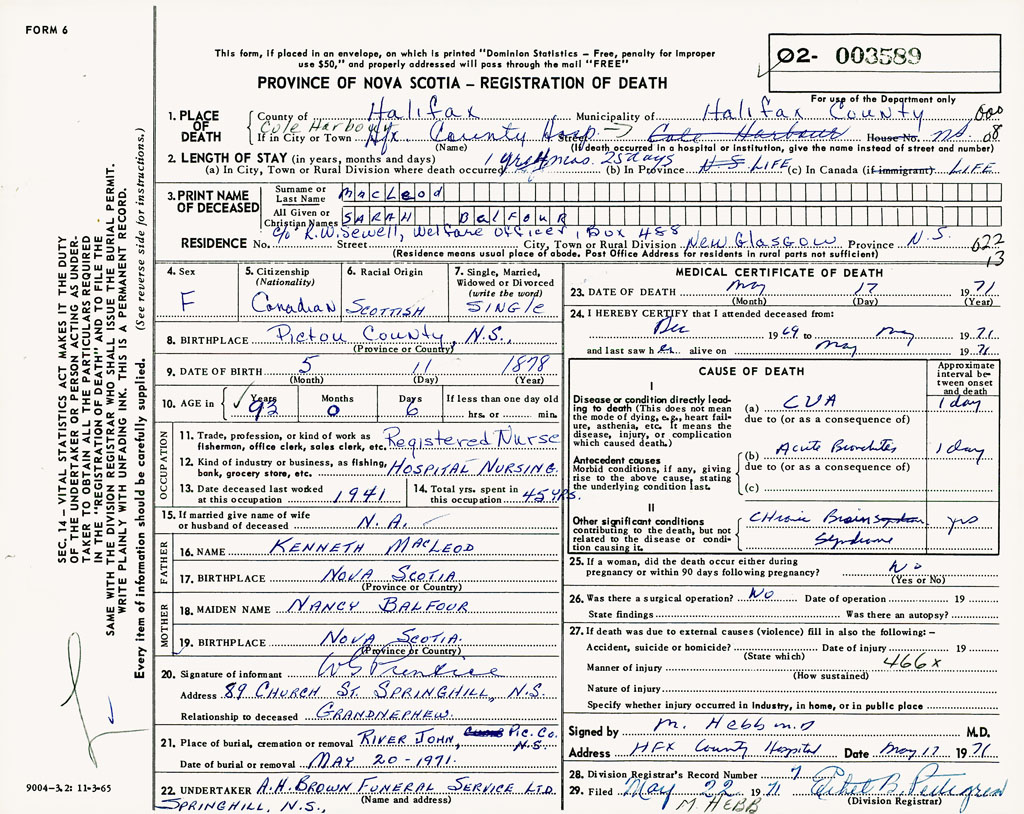 FORM 6
This form, if placed in an envelope, on which is printed "Dominion Statistics – Free, penalty for improper
use $50," and properly addressed will pass through the mail "FREE"
Ø2- 003589
PROVINCE OF NOVA SCOTIA – REGISTRATION OF DEATH
For use of the Department only
1. PLACE OF DEATH
County of Halifax Municipality of Halifax County 000
Cole Harbour
If in City or Town Hfx. County Hosp → Cole Harbour Street House No. N.S. 08
(Name) (If death occurred in a hospital or institution, give the name instead of street and number)
2. LENGTH OF STAY (in years, months and days)
(a) In City, Town or Rural Division where death occurred 1 yr mos. 25 days (b) In Province N S LIFE (c) In Canada (if immigrant) LIFE
3. PRINT NAME OF DECEASED
Surname or Last Name MacLeod
All Given or Christian Names SARAH BalFOUR
c/o R.W. Sewell, Welfare Officer, Box 488
RESIDENCE No. Street City, Town or Rural Division New Glasgow Province N.S. 622
(Residence means usual place of abode. Post Office Address for residents in rural parts not sufficient) 13
4. Sex F
5. Citizenship (Nationality) Canadian
6. Racial Origin SCOTTISH
7. Single, Married, Widowed or Divorced (write the word) SINGLE
8. BIRTHPLACE Pictou County, N.S.,
(Province or Country)
9. DATE OF BIRTH 5 11 1878
(Month) (Day) (Year)
10. AGE in Years 93 Months 0 Days 6 If less than one day old hrs. or min.
OCCUPATION
11. Trade, profession, or kind of work as fisherman, office clerk, sales clerk, etc. Registered Nurse
12. Kind of industry or business, as fishing, bank, grocery store, etc. HOSPITAL NURSING.
13. Date deceased last worked at this occupation 1941
14. Total yrs. spent in this occupation 45 YRS.
15. If married give name of wife or husband of deceased N.A.
FATHER
16. NAME KENNETH MACLEOD
17. BIRTHPLACE NOVA SCOTIA
(Province or Country)
MOTHER
18. MAIDEN NAME NANCY BALFOUR
19. BIRTHPLACE NOVA SCOTIA.
(Province or Country)
20. Signature of informant WG Prentice
Address 89 CHURCH ST. SPRINGHILL, N.S.
Relationship to deceased GRANDNEPHEW.
21. Place of burial, cremation or removal RIVER JOHN, PIC. CO. N.S.
Date of burial or removal MAY 20-1971.
22. UNDERTAKER A.H. BROWN FUNERAL SERVICE LTD.
(Name and address)
SPRINGHILL, N.S.,
MEDICAL CERTIFICATE OF DEATH
23. DATE OF DEATH May 17 1971
(Month) (Day) (Year)
24. I HEREBY CERTIFY that I attended deceased from:
Dec 1969 to May 1971
and last saw h er alive on May 1971
CAUSE OF DEATH
Approximate interval between onset and death
I
Disease or condition directly leading to death (This does not mean the mode of dying, e.g., heart failure, asthenia, etc. It means the disease, injury, or complication which caused death.)
(a) CVA 1 day
due to (or as a consequence of)
Antecedent causes
Morbid conditions, if any, giving rise to the above cause, stating the underlying condition last.
(b) Acute Bronchitis 1 day
due to (or as a consequence of)
(c)
II
Other significant conditions contributing to the death, but not related to the disease or condition causing it.
Chronic Brain Syndrome yrs
25. If a woman, did the death occur either during pregnancy or within 90 days following pregnancy? No
(Yes or No)
26. Was there a surgical operation? No Date of operation 19
State findings Was there an autopsy?
27. If death was due to external causes (violence) fill in also the following: –
Accident, suicide or homicide? Date of injury 19
(State which)
Manner of injury 466x
(How sustained)
Nature of injury
Specify whether injury occurred in industry, in home, or in public place
Signed by M. Hebb M.D M.D.
Address HFX County Hospital Date May 17 1971
28. Division Registrar's Record Number 7
29. Filed May 22 1971
(Division Registrar)
M. HEBB
SEC. 14 – VITAL STATISTICS ACT MAKES IT THE DUTY
OF THE UNDERTAKER OR PERSON ACTING AS UNDER-
TAKER TO OBTAIN ALL THE PARTICULARS REQUIRED
IN THE "REGISTRATION OF DEATH" AND TO FILE THE
SAME WITH THE DIVISION REGISTRAR WHO SHALL ISSUE THE BURIAL PERMIT.
WRITE PLAINLY WITH UNFADING INK. THIS IS A PERMANENT RECORD.
Every item of information should be carefully supplied. (See reverse side for instructions.)
9004-3.2: 11-3-65